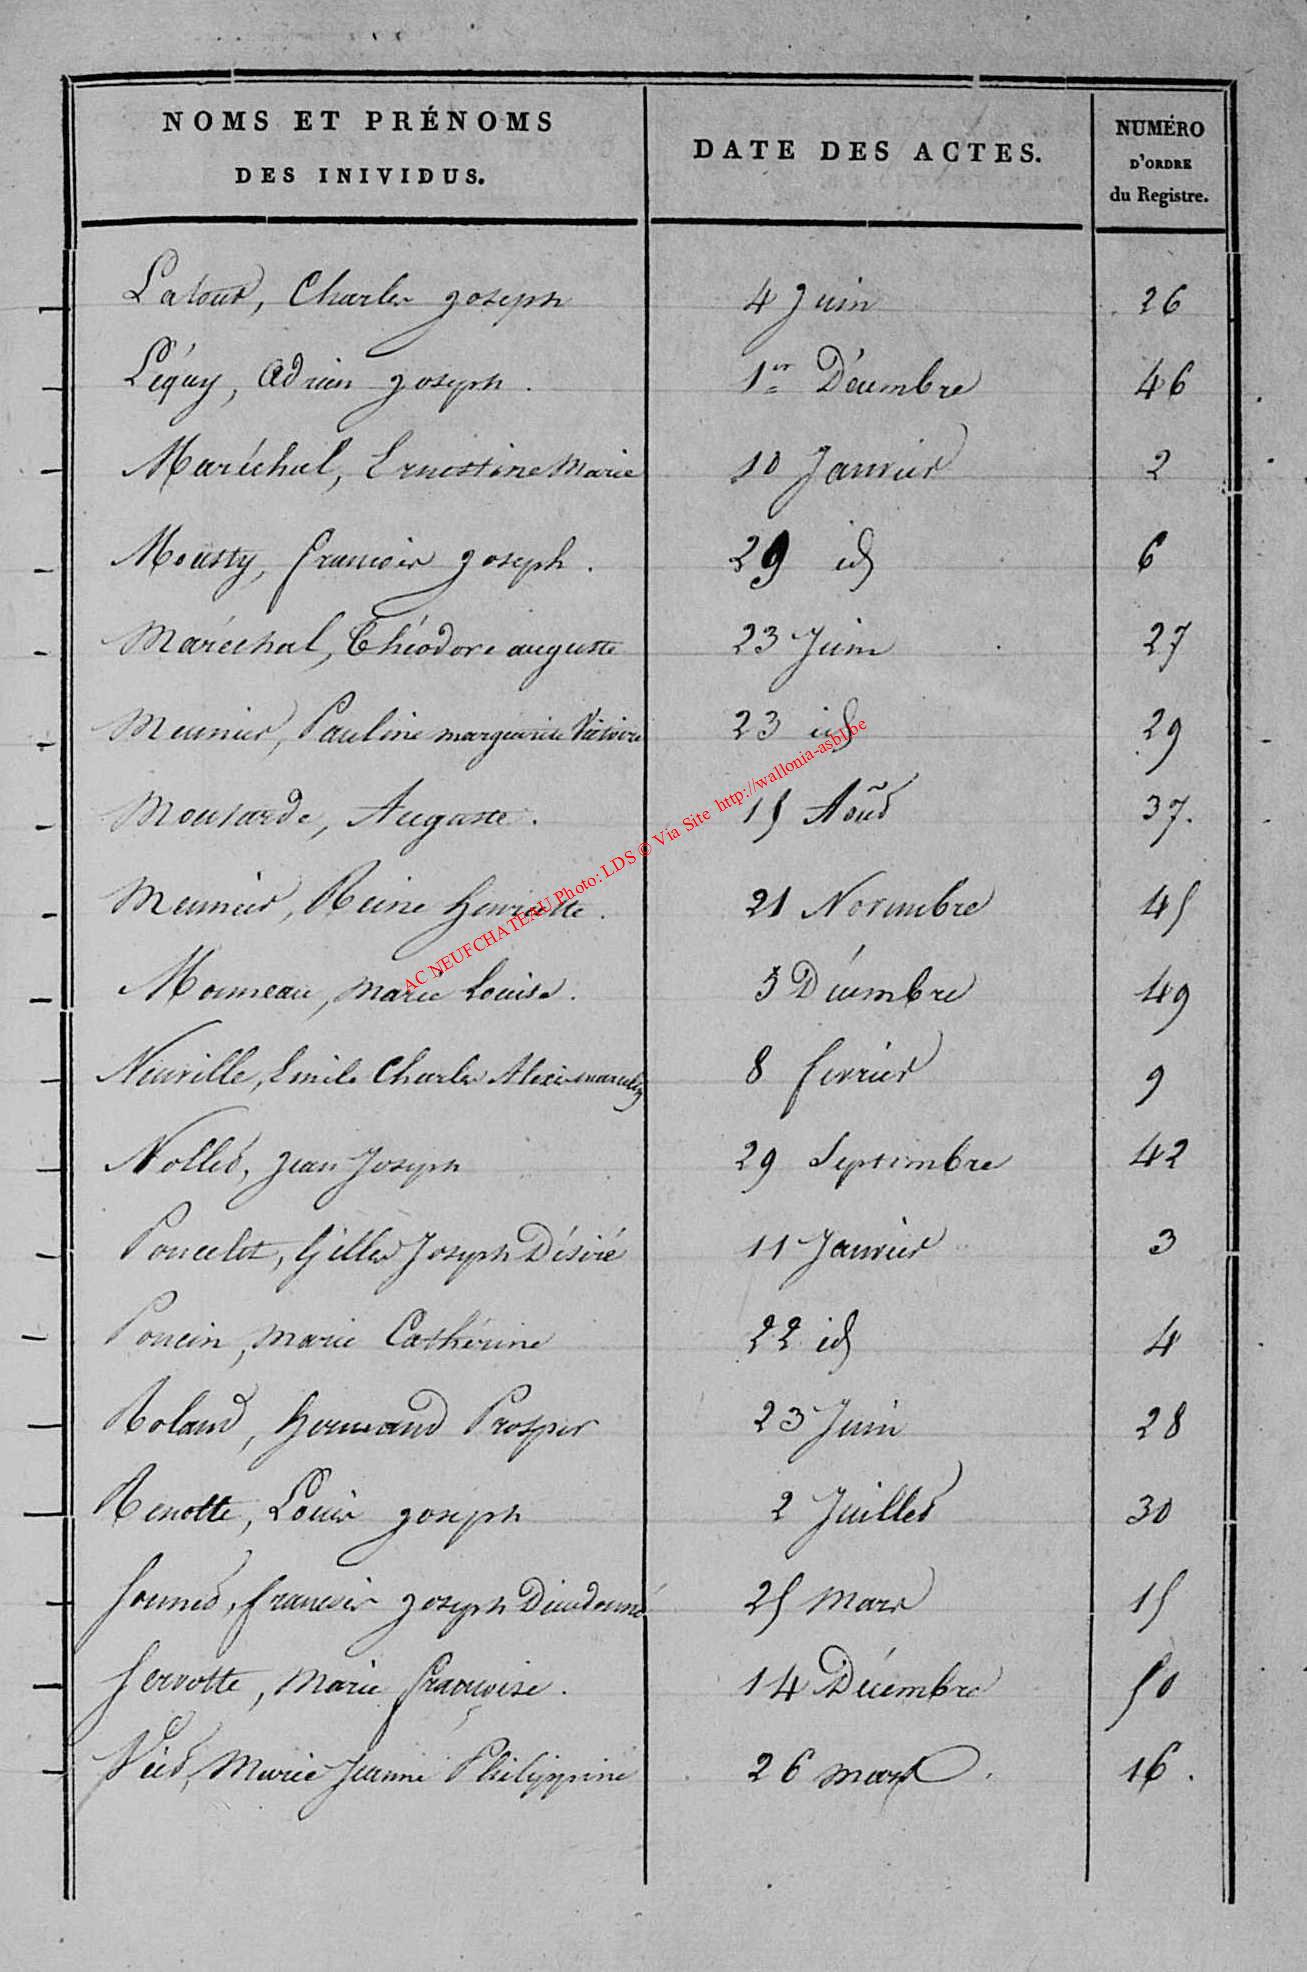 NOMS ET PRÉNOMS
DES INIVIDUS.
DATE DES ACTES.
NUMÉRO
D'ORDRE
du Registre.
Latour, Charles Joseph 4 Juin 26
Léquy, Adrien Joseph. 1er Décembre 46
Maréchal, Ernestine Marie 10 Janvier 2
Mousty, François Joseph. 29 id 6
Maréchal, Théodore auguste 23 Juin 27
Meunier, Pauline marguerite Victoire 23 id 29
Moutarde, Auguste. 15 Août 37.
Meunier, Reine Henriette. 21 Novembre 45
Monneau, Marie Louise. 5 Décembre 49
Neuville, Emile Charles Alexis 8 fevrier 9
Nollet, Jean Joseph 29 Septembre 42
Poncelet, Gilles Joseph Désiré 11 Janvier 3
Poncin, Marie Cathérine 22 id 4
Roland, Hermand Prosper 23 Juin 28
Renotte, Louis Joseph 2 Juillet 30
François Joseph Dieudonné 25 Mars 15
Servotte, Marie Françoise. 14 Décembre 50
Marie Jeanne Philippine 26 mars. 16.
AC NEUFCHATEAU Photo: LDS © Via Site http://wallonia-asbl.be